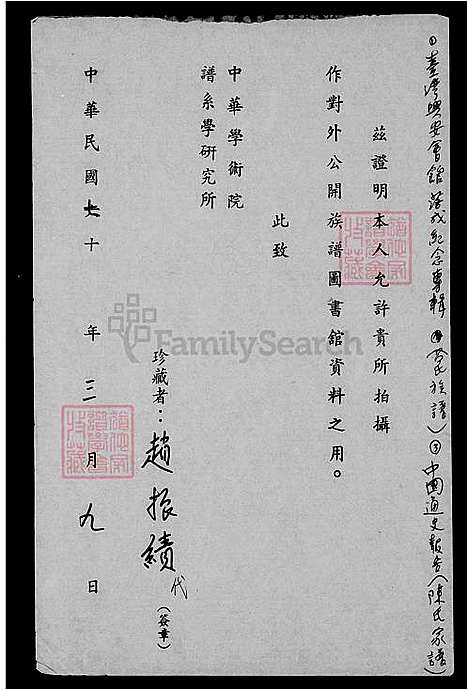 ①臺灣興安會館落成紀念專輯 ② 氏族譜 ③中國通史報告(陳氏家譜)
茲證明本人允許貴所拍攝
作對外公開族譜圖書館資料之用。
此致
中華學術院
譜系學研究所
珍藏者：趙振績代(簽章)
中華民國七十年三月九日
FamilySearch